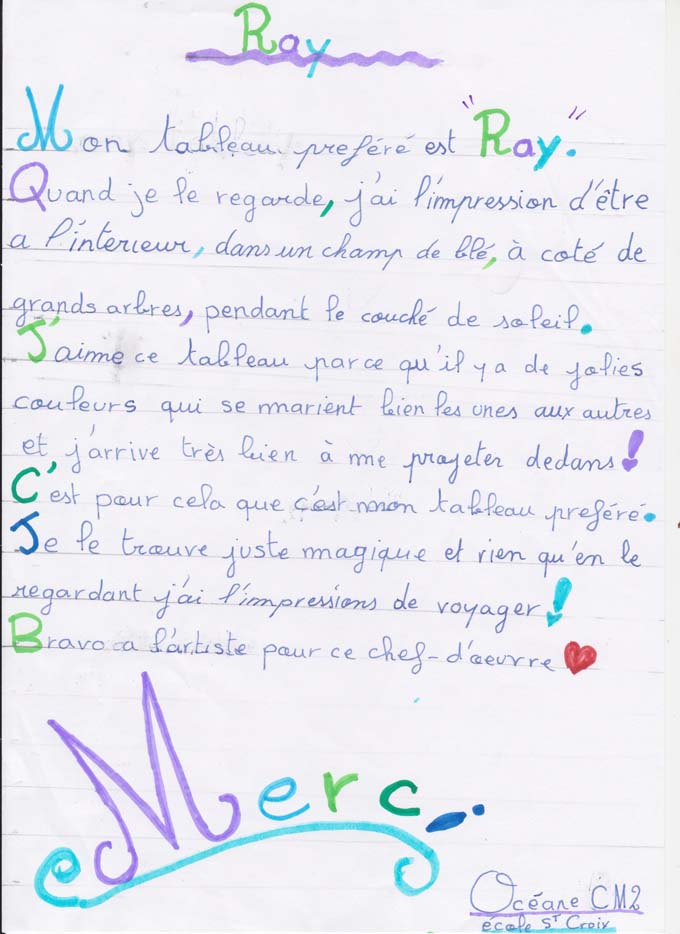 Ray
Mon tableau preféré est "Ray".
Quand je le regarde, j'ai l'impression d'être
a l'intérieur, dans un champ de blé, à coté de
grands arbres, pendant le couché de soleil.
J'aime ce tableau parce qu'il y a de jolies
couleurs qui se marient bien les unes aux autres
et j'arrive très bien à me projeter dedans !
C'est pour cela que c'est mon tableau preféré.
Je le trouve juste magique et rien qu'en le
regardant j'ai l'impressions de voyager !
Bravo a l'artiste pour ce chef-d'oeuvre ❤
Merci
Océane CM2
école St Croix